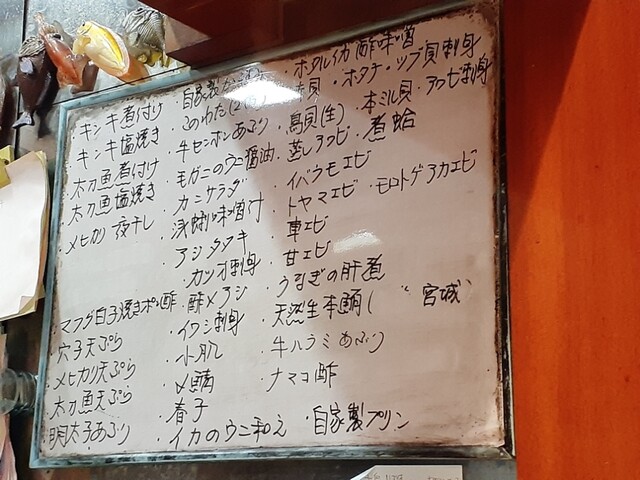 ・キンキ煮付け
・キンキ塩焼き
・太刀魚煮付け
・太刀魚塩焼き
・メヒカリ一夜干し
・マフグ白子焼きポン酢
・穴子天ぷら
・メヒカリ天ぷら
・太刀魚天ぷら
・明太子あぶり
・自家製
・このわた
・牛センボンあぶり
・毛ガニのウニ醤油
・カニサラダ
・味噌付
・アジタタキ
・カツオ刺身
・酢〆アジ
・イワシ刺身
・小肌
・〆鯖
・春子
・イカのウニ和え
・ホタルイカ酢味噌
貝・ホタテ・ツブ貝刺身
・鳥貝(生)・本ミル貝・アワビ刺身
・蒸しアワビ・煮蛤
・イバラモエビ
・トヤマエビ・モロトゲアカエビ
・車エビ
・甘エビ
・うなぎの肝煮
・天然生本鮪(宮城)
・牛ハラミあぶり
・ナマコ酢
・自家製プリン